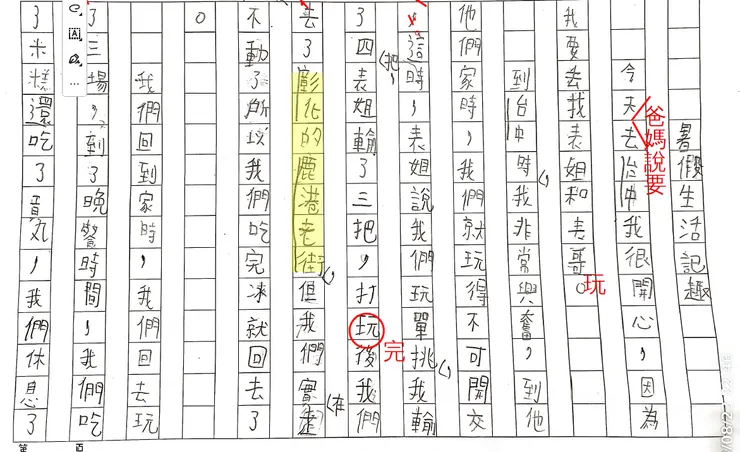 暑假生活記趣
今天去台中我很開心，因為
爸媽說要
我要去找表姐和表哥。
玩
到台中時，我非常興奮，到他
他們家時，我們就玩得不可開交
這時，表姐說我們玩單挑，我輸
了四把，表姐輸了三把，打玩後我們
完
去了彰化的鹿港老街，但我們實在走
不動了所以我們吃完冰就回去了
。
我們回到家時，我們回去玩
了三場，到了晚餐時間，我們吃
了米糕還吃了貢丸，我們休息了
第 頁